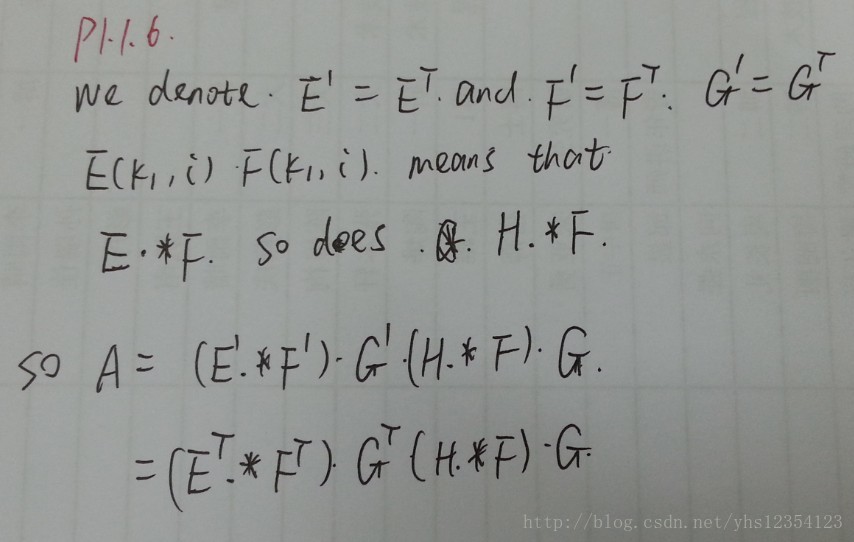 P1.1.6.
We denote. E' = Eᵀ. and. F' = Fᵀ. G' = Gᵀ
E(k₁, i) · F(k₁, i). means that
E.*F. So does . . H.*F.
So A = (E'.*F')·G'·(H.*F)·G.
= (Eᵀ.*Fᵀ)·Gᵀ(H.*F)·G.
http://blog.csdn.net/yhs12354123